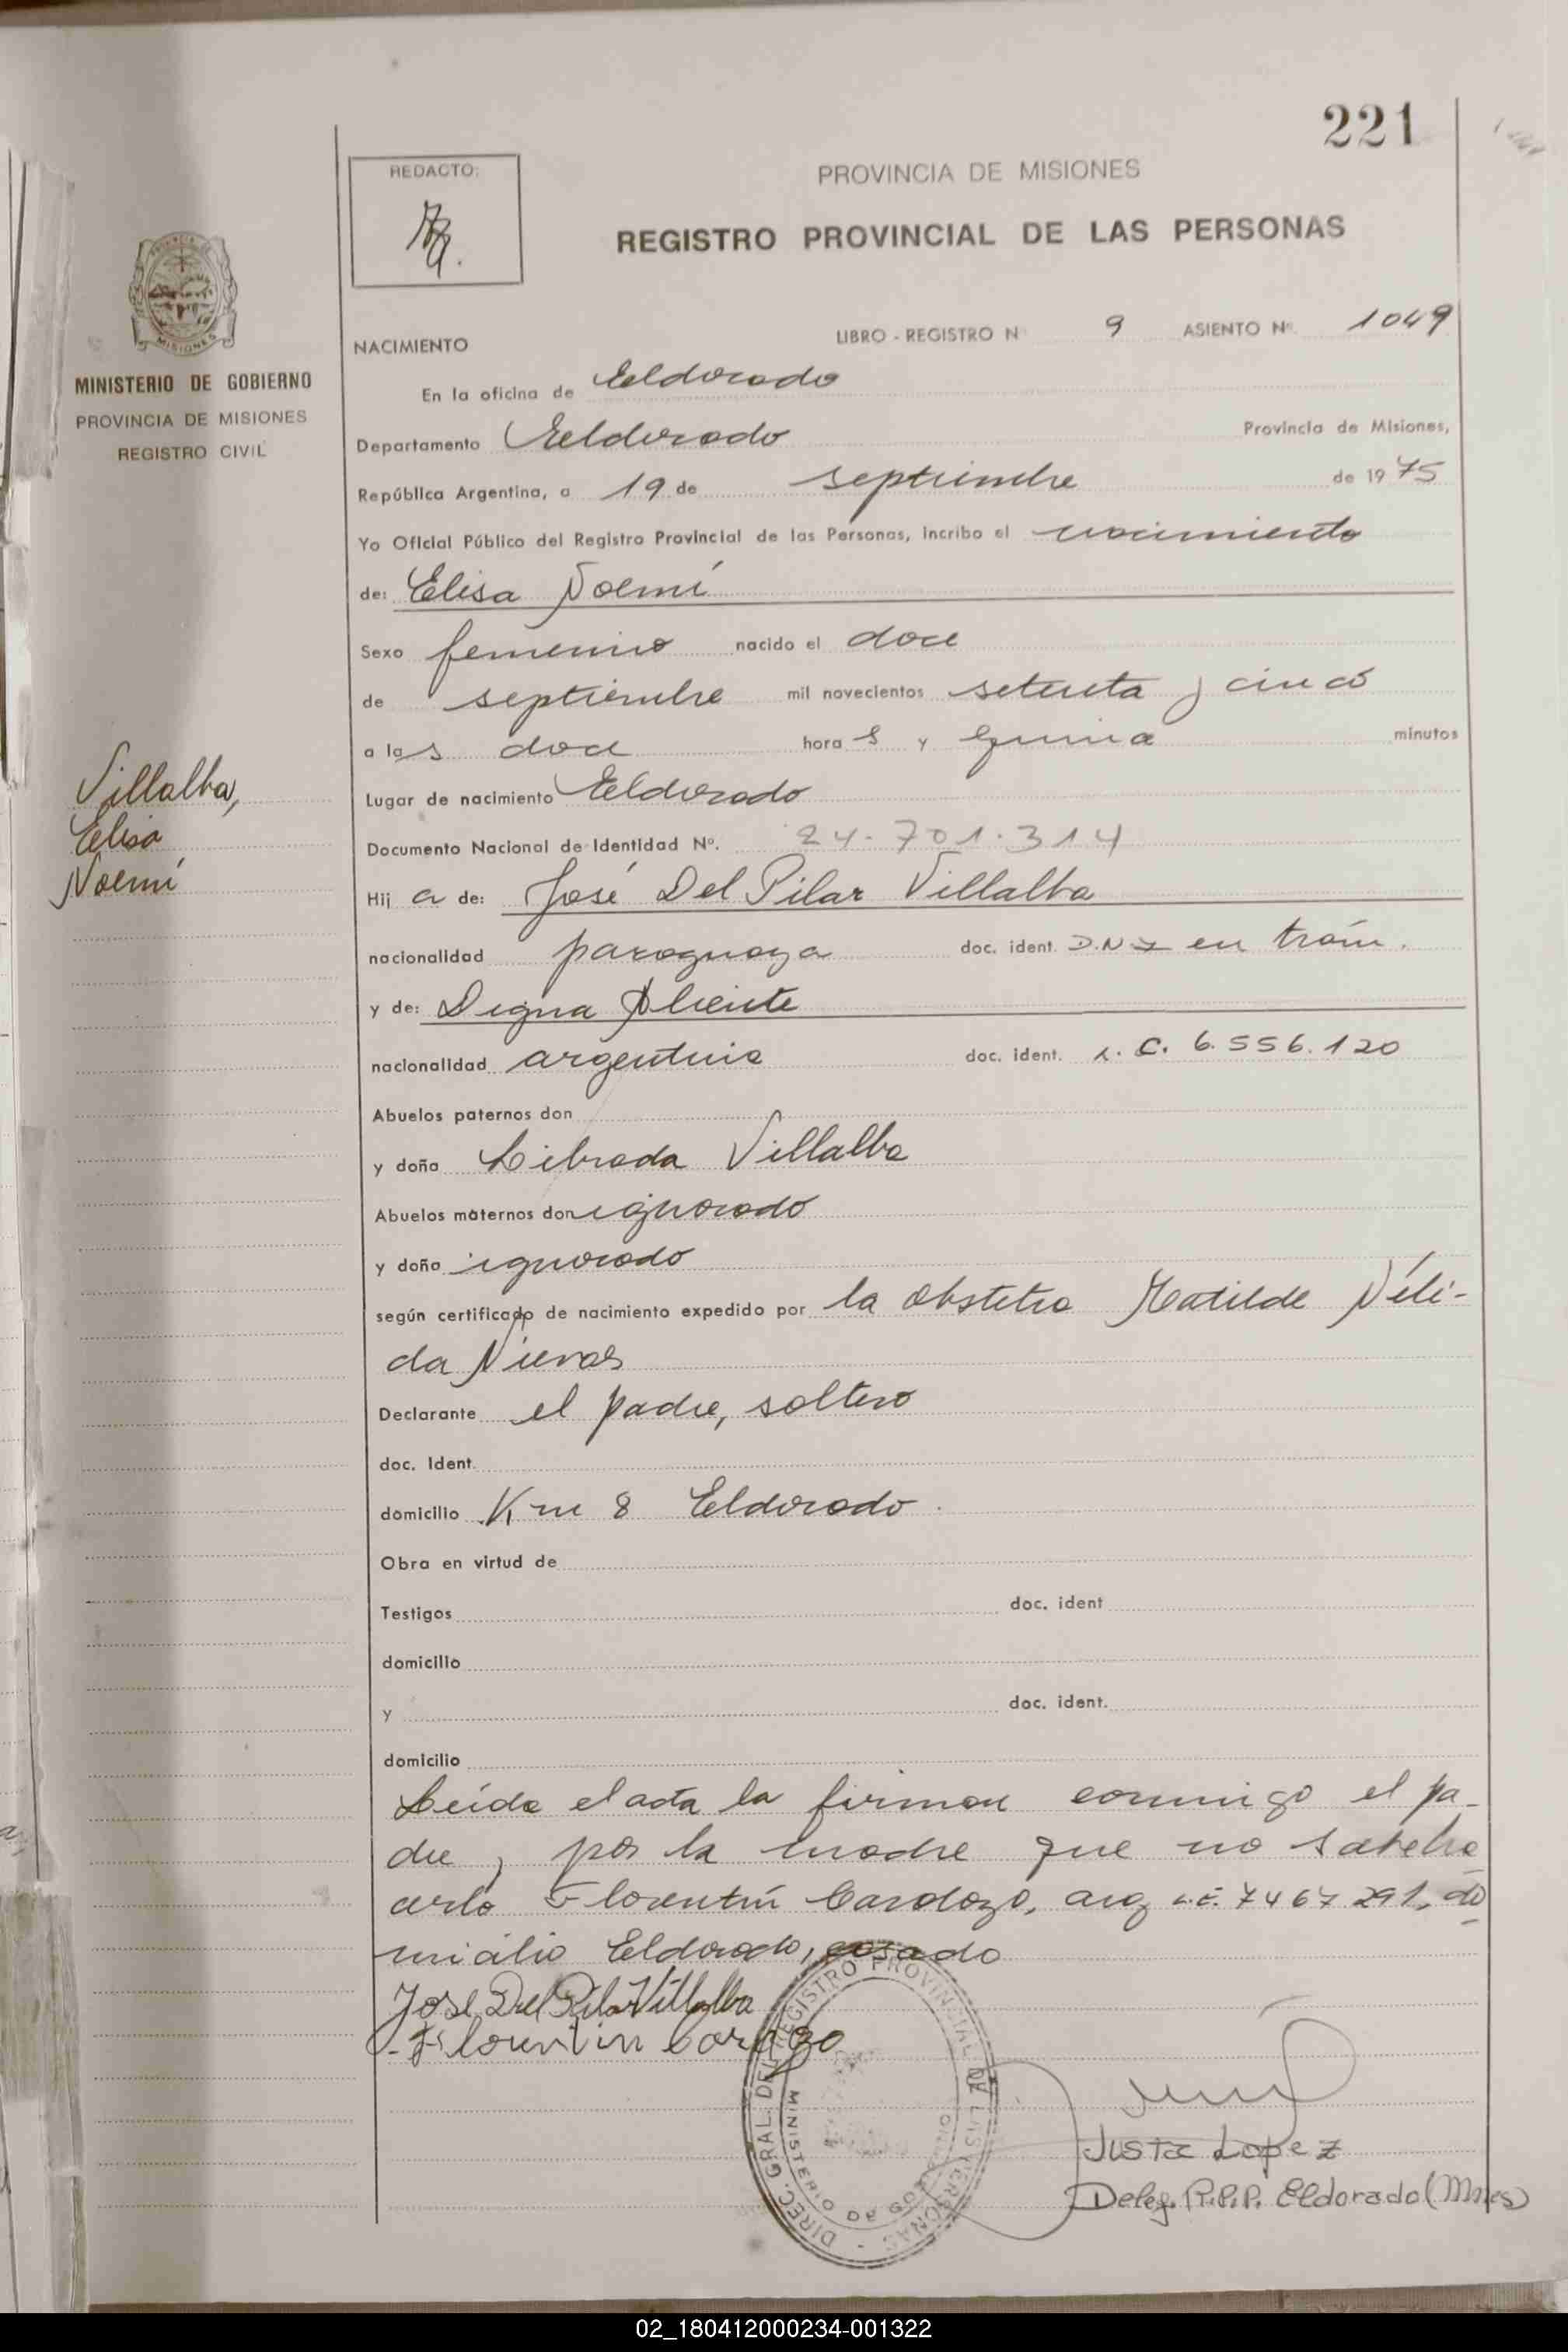 221
REDACTO:
PROVINCIA DE MISIONES
REGISTRO PROVINCIAL DE LAS PERSONAS
MINISTERIO DE GOBIERNO
PROVINCIA DE MISIONES
REGISTRO CIVIL
Villalba,
Elisa
Noemí
NACIMIENTO LIBRO - REGISTRO N 9 ASIENTO Nº 1049
En la oficina de Eldorado
Departamento Eldorado Provincia de Misiones,
República Argentina, a 19 de septiembre de 1975
Yo Oficial Público del Registro Provincial de las Personas, incribo el nacimiento
de: Elisa Noemí
Sexo femenino nacido el doce
de septiembre mil novecientos setenta y cinco
a las doce horas y quince minutos
Lugar de nacimiento Eldorado
Documento Nacional de Identidad Nº. 24.701.314
Hija de: José Del Pilar Villalba
nacionalidad paraguaya doc. ident. D.N.I en trám.
y de: Digna
nacionalidad argentina doc. ident. L.C. 6.556.120
Abuelos paternos don
y doña Librada Villalba
Abuelos maternos don ignorado
y doña ignorado
según certificado de nacimiento expedido por la obstetra Matilde Néli-
da Nievas
Declarante el padre, soltero
doc. Ident.
domicilio Km 8 Eldorado.
Obra en virtud de
Testigos doc. ident
domicilio
y doc. ident.
domicilio
Leída el acta la firman conmigo el pa-
dre y por la madre que no sabe ha
cerlo Florentín Cardozo, arg L.E. 7467291, do
micilio Eldorado, casado
Jose Del Pilar Villalba
Florentin Cardozo
DIREC. GRAL. DEL REGISTRO PROVINCIAL DE LAS PERSONAS
MINISTERIO DE GOBIERNO
Justa Lopez
Deleg. R.P.P. Eldorado (Mnes)
02_180412000234-001322